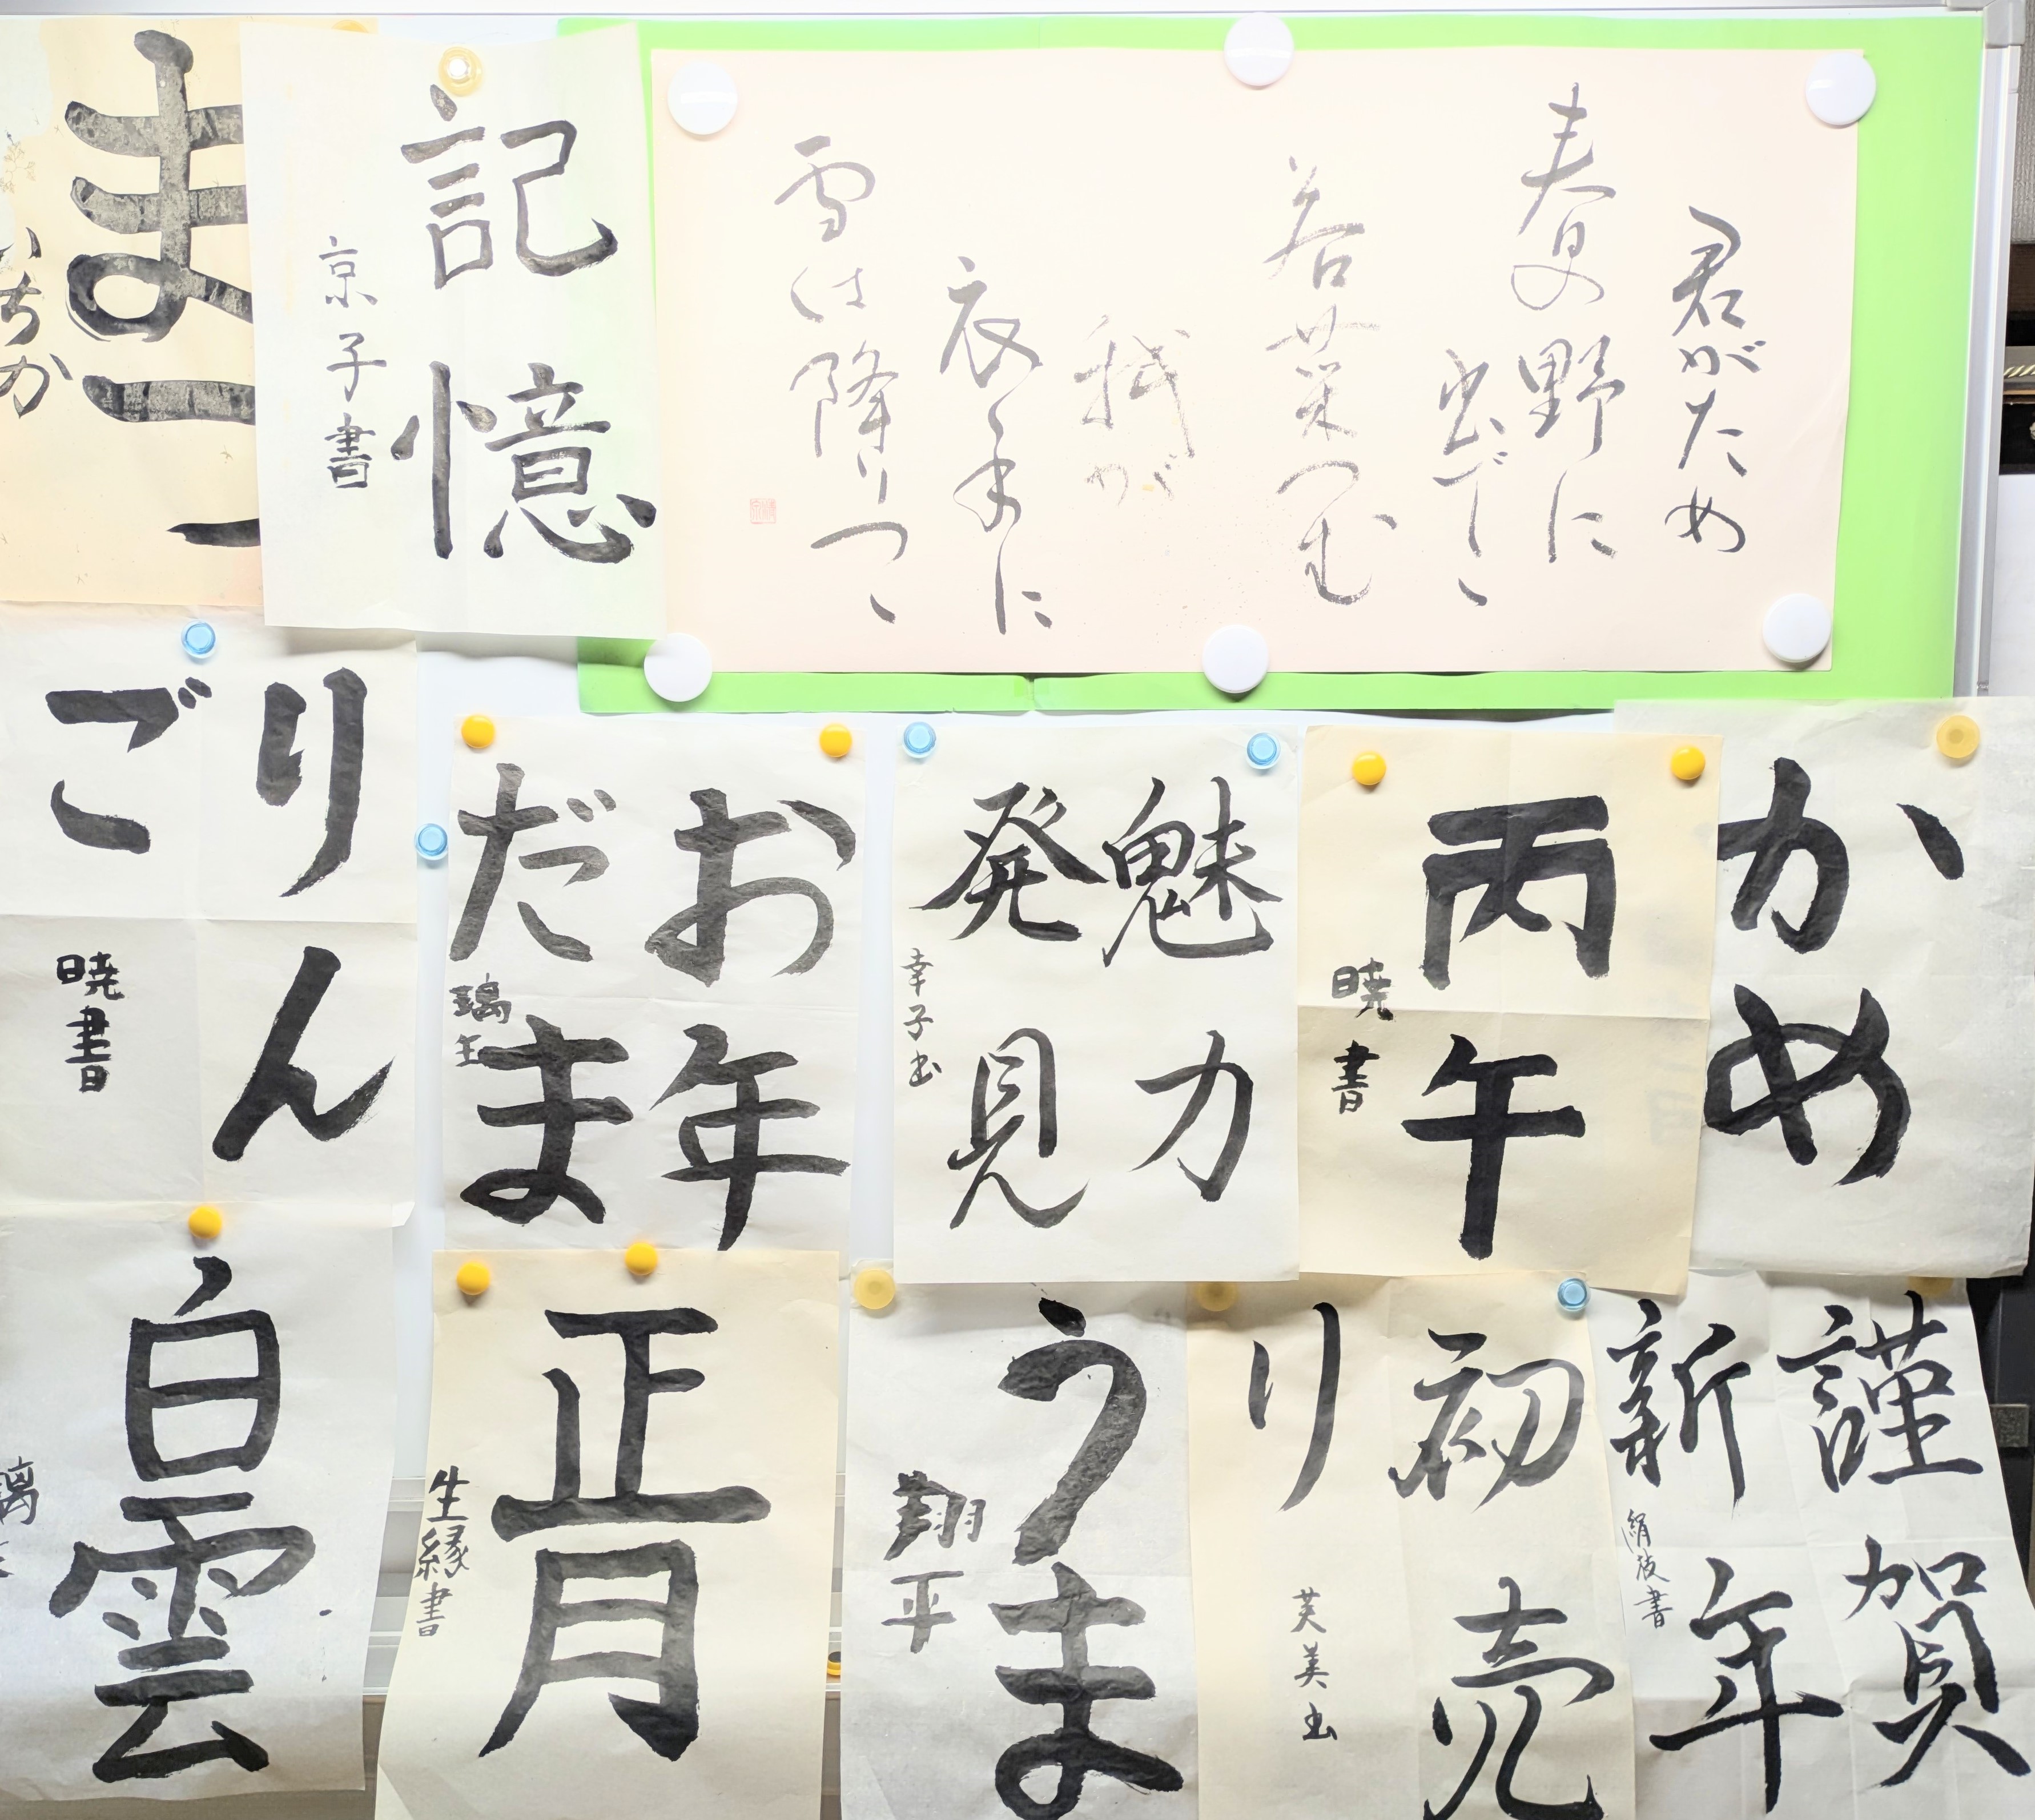 君がため
春の野に
出でて
若菜つむ
我が
衣手に
雪は降りつゝ
記憶
京子書
ま
ちか
かめ
丙午
暁書
魅力
発見
幸子書
お年
だま
りん
ご
暁書
謹賀
新年
初売
り
芙美書
うま
翔平
正月
生縁書
白雲